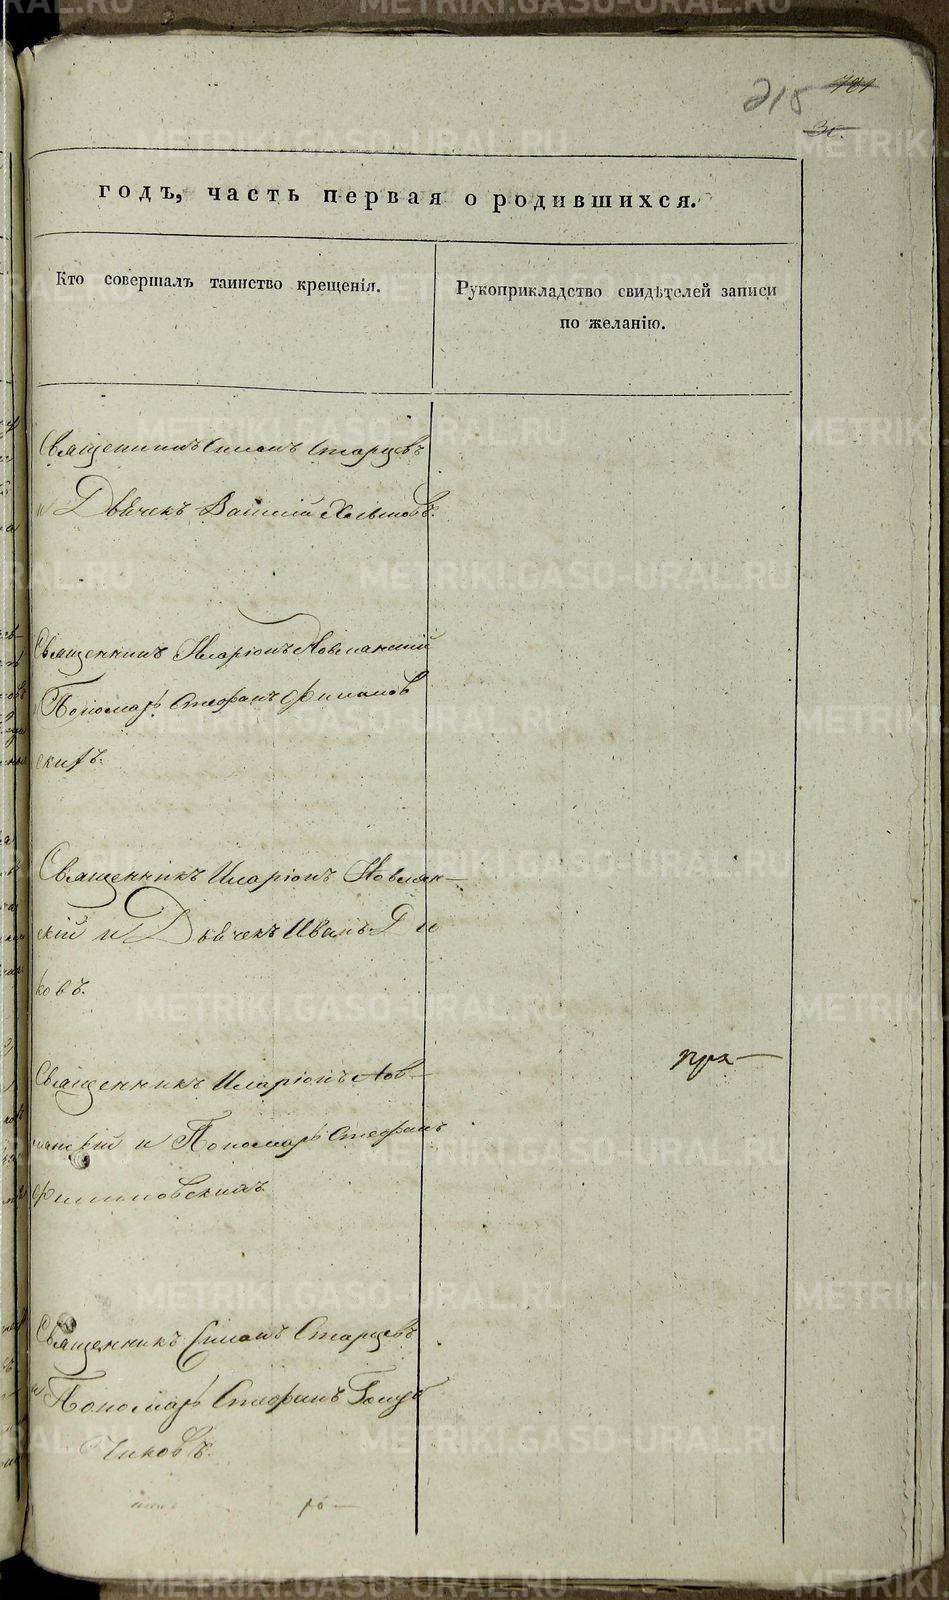 215 781
30.
годъ, часть первая о родившихся.
Кто совершалъ таинство крещенія.
Рукоприкладство свидѣтелей записи
по желанію.
Священникъ Симонъ Старцевъ
и Дьячекъ Василій
Священникъ Иларіонъ Новлянскій
Пономарь Стефанъ Филипов
скихъ.
Священникъ Иларіонъ Новлян-
скій и Дьячекъ Иванъ Ди
ковъ.
Священникъ Иларіонъ Нов-
лянскій и Пономарь Стефанъ
Филиповскихъ
Священникъ Симонъ Старцевъ
и Пономарь Стефанъ Голуб
чиковъ.
METRIKI.GASO-URAL.RU